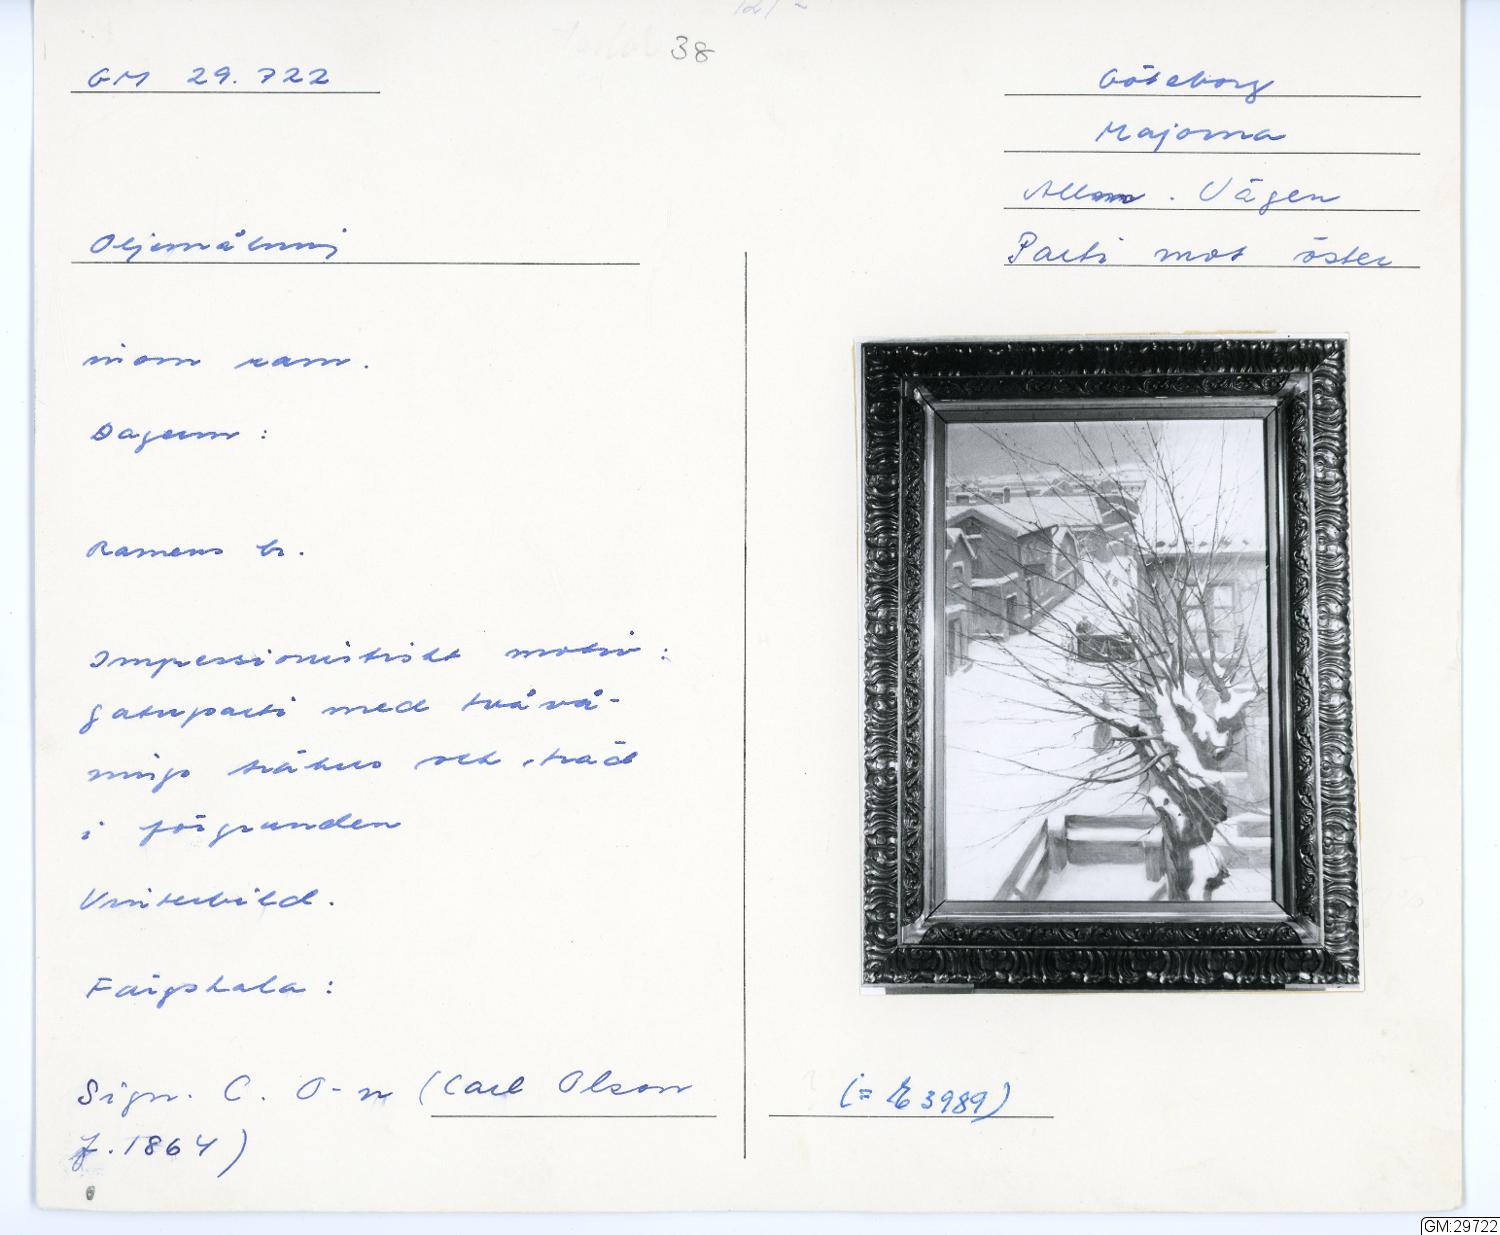 38
GM 29.722
Göteborg
Majorna
Allm. Vägen
Parti mot öster
Oljemålning
inom ram.
Dagerm :
Ramens br.
Impressionistiskt motiv :
gatuparti med tvåvå-
nings trähus och träd
i förgrunden
Vinterbild.
Färgskala :
Sign. C. O-n (Carl Olson
f. 1864)
(= E 3989)
GM:29722